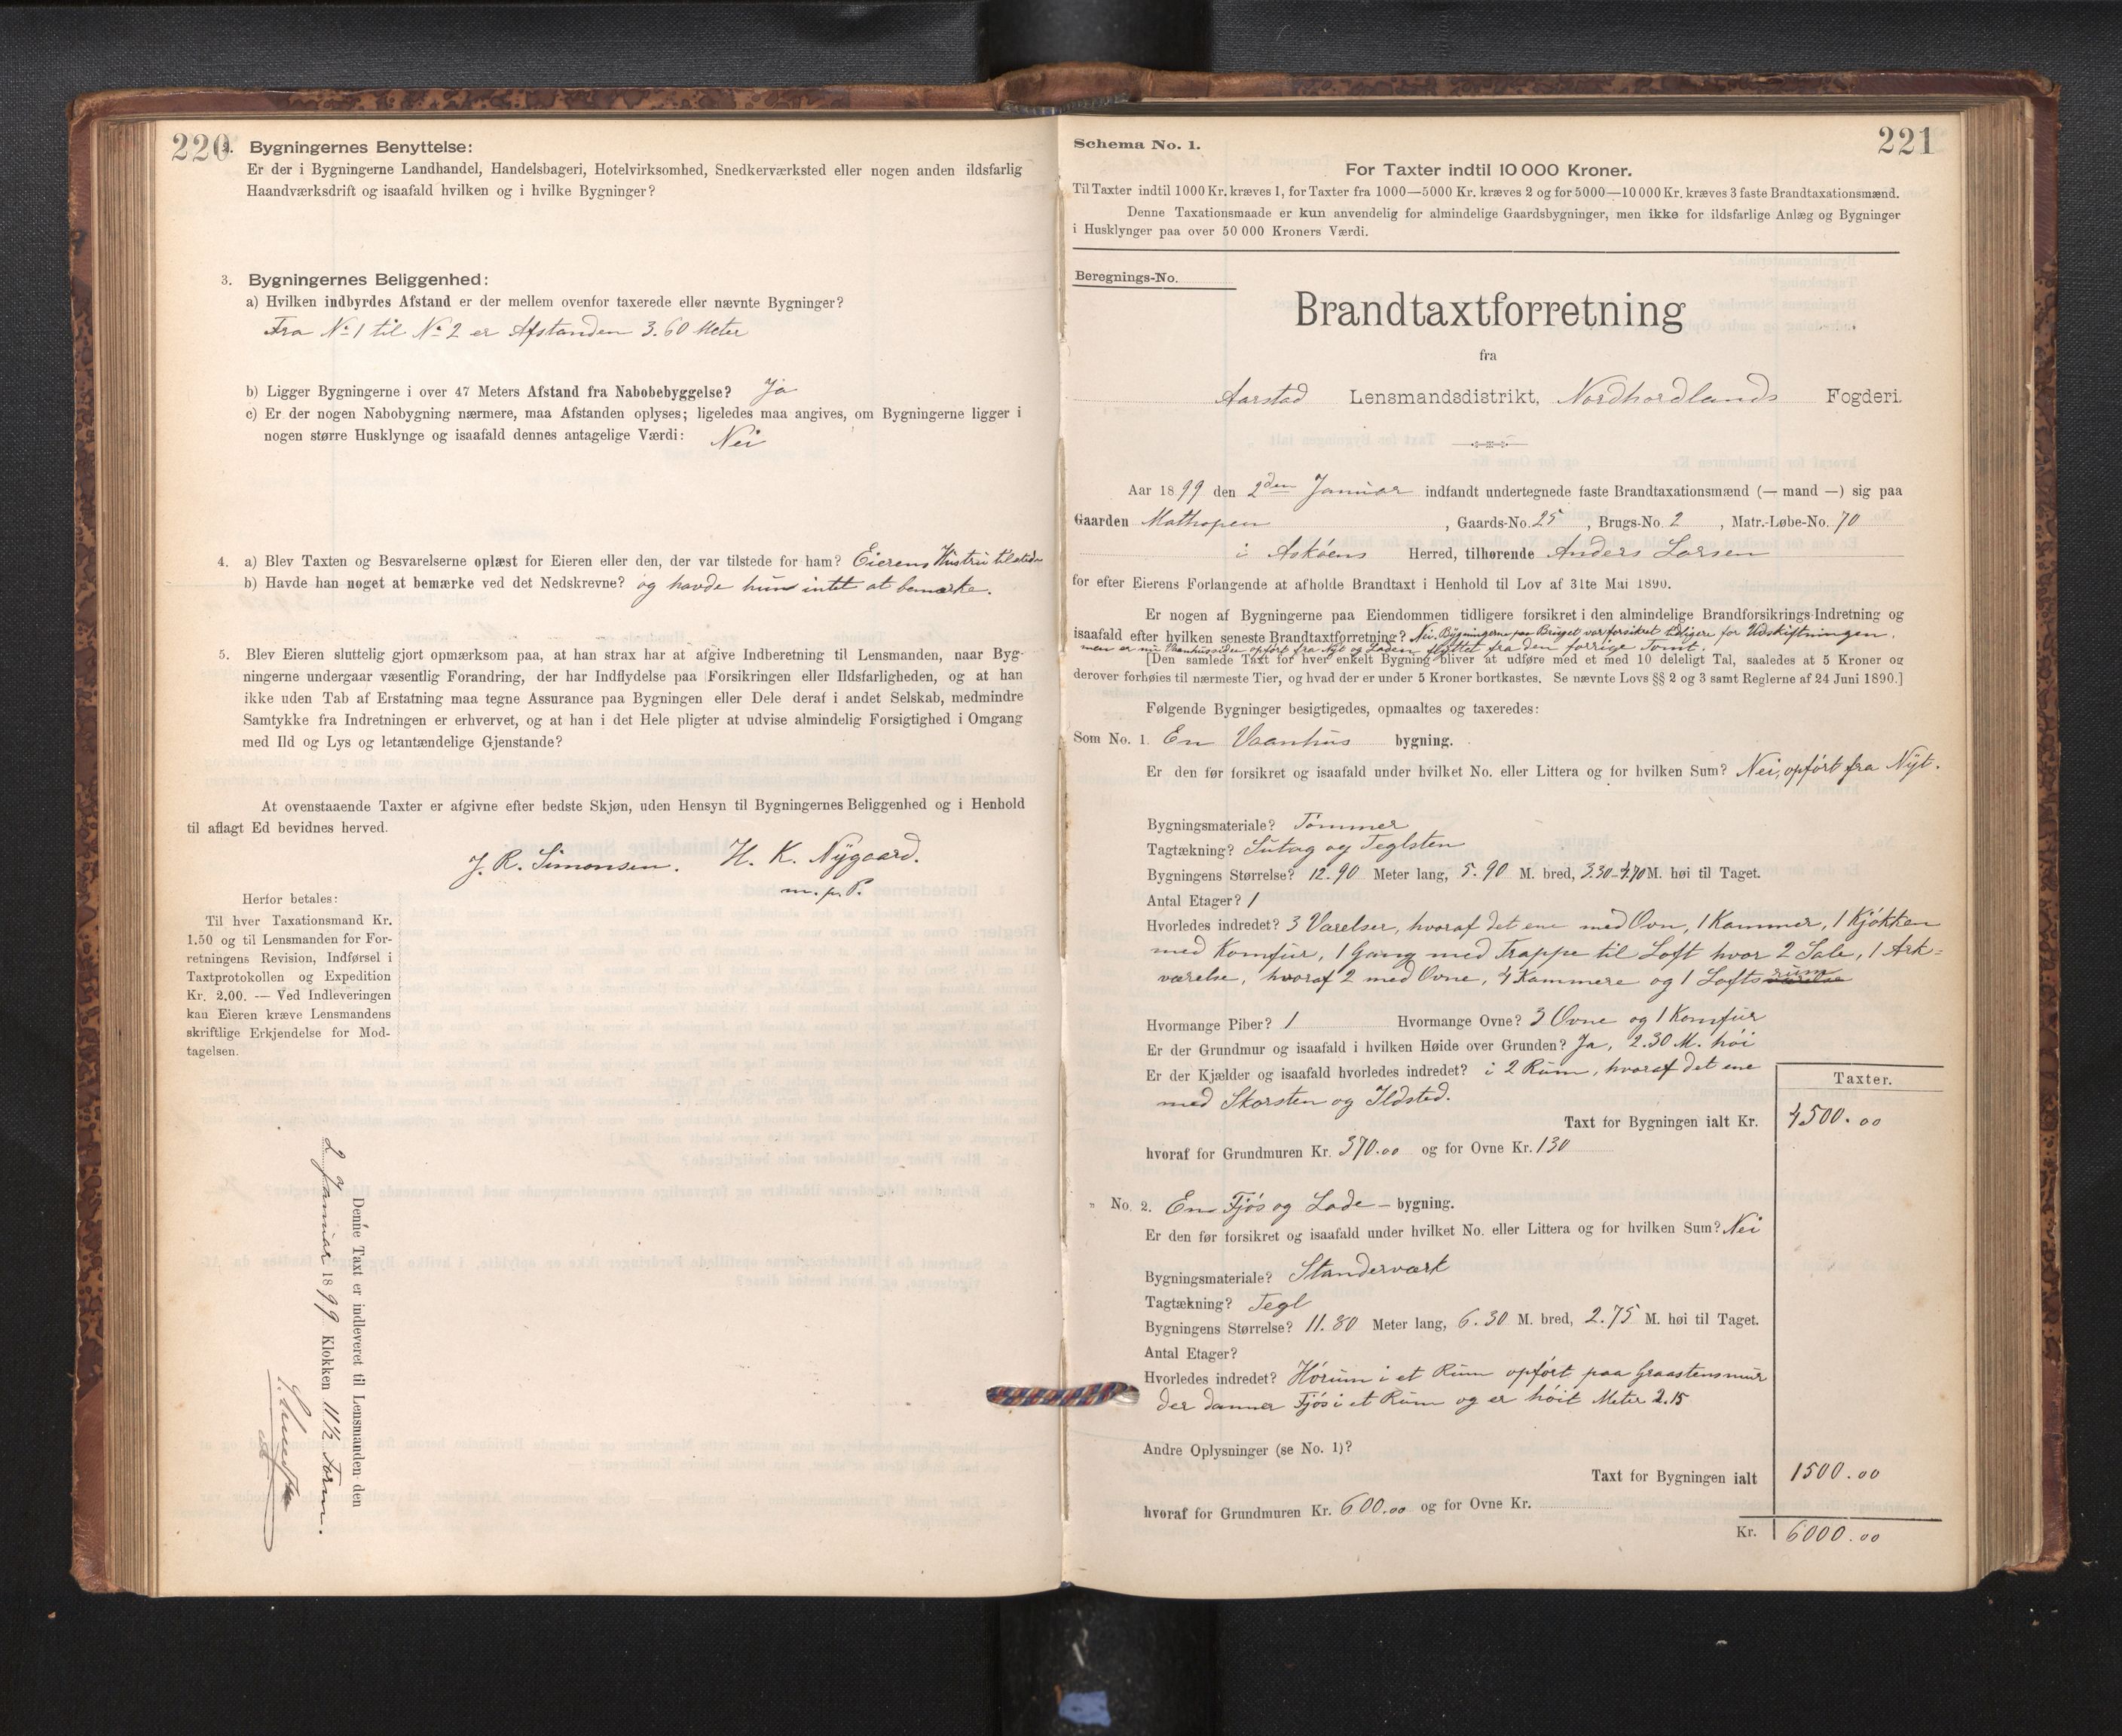 220
2. Bygningernes Benyttelse:
Er der i Bygningerne Landhandel, Handelsbageri, Hotelvirksomhed, Snedkerværksted eller nogen anden ildsfarlig
Haandværksdrift og isaafald hvilken og i hvilke Bygninger?
3. Bygningernes Beliggenhed:
a) Hvilken indbyrdes Afstand er der mellem ovenfor taxerede eller nævnte Bygninger?
Fra No 1 til No 2 er Afstanden 3.60 Meter
b) Ligger Bygningerne i over 47 Meters Afstand fra Nabobebyggelse? Ja
c) Er der nogen Nabobygning nærmere, maa Afstanden oplyses; ligeledes maa angives, om Bygningerne ligger i
nogen større Husklynge og isaafald dennes antagelige Værdi: Nei
4. a) Blev Taxten og Besvarelserne oplæst for Eieren eller den, der var tilstede for ham? Eierens Hustru tilstede
b) Havde han noget at bemærke ved det Nedskrevne? og havde hun intet at bemærke.
5. Blev Eieren sluttelig gjort opmærksom paa, at han strax har at afgive Indberetning til Lensmanden, naar Byg-
ningerne undergaar væsentlig Forandring, der har Indflydelse paa Forsikringen eller Ildsfarligheden, og at han
ikke uden Tab af Erstatning maa tegne Assurance paa Bygningen eller Dele deraf i andet Selskab, medmindre
Samtykke fra Indretningen er erhvervet, og at han i det Hele pligter at udvise almindelig Forsigtighed i Omgang
med Ild og Lys og letantændelige Gjenstande?
At ovenstaaende Taxter er afgivne efter bedste Skjøn, uden Hensyn til Bygningernes Beliggenhed og i Henhold
til aflagt Ed bevidnes herved.
J. R. Simonsen. H. K. Nygaard.
m. p. P.
Herfor betales:
Til hver Taxationsmand Kr.
1.50 og til Lensmanden for For-
retningens Revision, Indførsel i
Taxtprotokollen og Expedition
Kr. 2.00. — Ved Indleveringen
kan Eieren kræve Lensmandens
skriftlige Erkjendelse for Mod-
tagelsen.
Denne Taxt er indleveret til Lensmanden den
2 Januar 1899 Klokken 11½ Form.
221
Schema No. 1.
For Taxter indtil 10 000 Kroner.
Til Taxter indtil 1000 Kr. kræves 1, for Taxter fra 1000—5000 Kr. kræves 2 og for 5000—10 000 Kr. kræves 3 faste Brandtaxationsmænd.
Denne Taxationsmaade er kun anvendelig for almindelige Gaardsbygninger, men ikke for ildsfarlige Anlæg og Bygninger
i Husklynger paa over 50 000 Kroners Værdi.
Beregnings-No.
Brandtaxtforretning
fra
Aarstad Lensmandsdistrikt, Nordhordlands Fogderi.
Aar 1899 den 2den Januar indfandt undertegnede faste Brandtaxationsmænd (— mand —) sig paa
Gaarden Mathopen, Gaards-No. 25, Brugs-No. 2, Matr.-Løbe-No. 70
i Askøens Herred, tilhørende Anders Larsen
for efter Eierens Forlangende at afholde Brandtaxt i Henhold til Lov af 31te Mai 1890.
Er nogen af Bygningerne paa Eiendommen tidligere forsikret i den almindelige Brandforsikrings-Indretning og
isaafald efter hvilken seneste Brandtaxtforretning? Nei. Bygningerne paa Bruget var forsikret tidligere før Udskiftningen,
men er nu Vaanhussiden opført fra Nyt og Laden flyttet fra den forrige Tomt.
[Den samlede Taxt for hver enkelt Bygning bliver at udføre med et med 10 deleligt Tal, saaledes at 5 Kroner og
derover forhøies til nærmeste Tier, og hvad der er under 5 Kroner bortkastes. Se nævnte Lovs §§ 2 og 3 samt Reglerne af 24 Juni 1890.]
Følgende Bygninger besigtigedes, opmaaltes og taxeredes:
Som No. 1. En Vaanhus bygning.
Er den før forsikret og isaafald under hvilket No. eller Littera og for hvilken Sum? Nei, opført fra Nyt.
Bygningsmateriale? Tømmer
Tagtækning? Sutag og Teglsten
Bygningens Størrelse? 12.90 Meter lang, 5.90 M. bred, 3.30-4.70 M. høi til Taget.
Antal Etager? 1
Hvorledes indredet? 3 Værelser, hvoraf det ene med Ovn, 1 Kammer, 1 Kjøkken
med Komfur, 1 Gang med Trappe til Loft hvor 2 Sale, 1 Ark-
værelse, hvoraf 2 med Ovne, 4 Kammere og 1 Loftsrum
Hvormange Piber? 1 Hvormange Ovne? 3 Ovne og 1 Komfur
Er der Grundmur og isaafald i hvilken Høide over Grunden? Ja, 2.30 M. høi
Er der Kjælder og isaafald hvorledes indredet? i 2 Rum, hvoraf det ene
med Skorsten og Ildsted.
Taxter.
Taxt for Bygningen ialt Kr. 4500.00
hvoraf for Grundmuren Kr. 370.00 og for Ovne Kr. 130
" No. 2. En Fjøs og Lade - bygning.
Er den før forsikret og isaafald under hvilket No. eller Littera og for hvilken Sum? Nei
Bygningsmateriale? Standerværk
Tagtækning? Tegl
Bygningens Størrelse? 11.80 Meter lang, 6.30 M. bred, 2.75 M. høi til Taget.
Antal Etager?
Hvorledes indredet? Hørum i et Rum opført paa Graastensmur
der danner Fjøs i et Rum og er høit Meter 2.15
Andre Oplysninger (se No. 1)?
Taxt for Bygningen ialt 1500.00
hvoraf for Grundmuren Kr. 600.00 og for Ovne Kr.
Kr. 6000.00